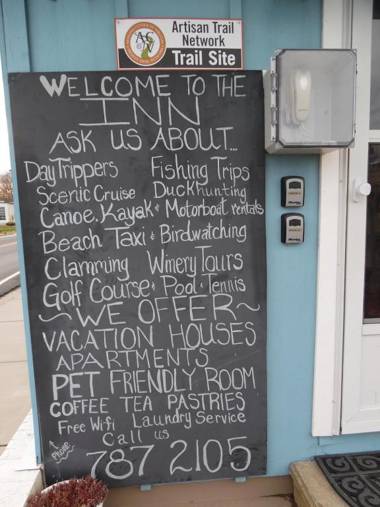 Artisan Trail
Network
Trail Site
WELCOME TO THE
INN
ASK US ABOUT...
Day Trippers Fishing Trips
Scenic Cruise Duck hunting
Canoe, Kayak & Motorboat rentals
Beach Taxi & Birdwatching
Clamming Winery Tours
Golf Course & Pool & Tennis
~WE OFFER~
VACATION HOUSES
APARTMENTS
PET FRIENDLY ROOM
COFFEE TEA PASTRIES
Free Wifi Laundry Service
Call us
Phone
787 2105